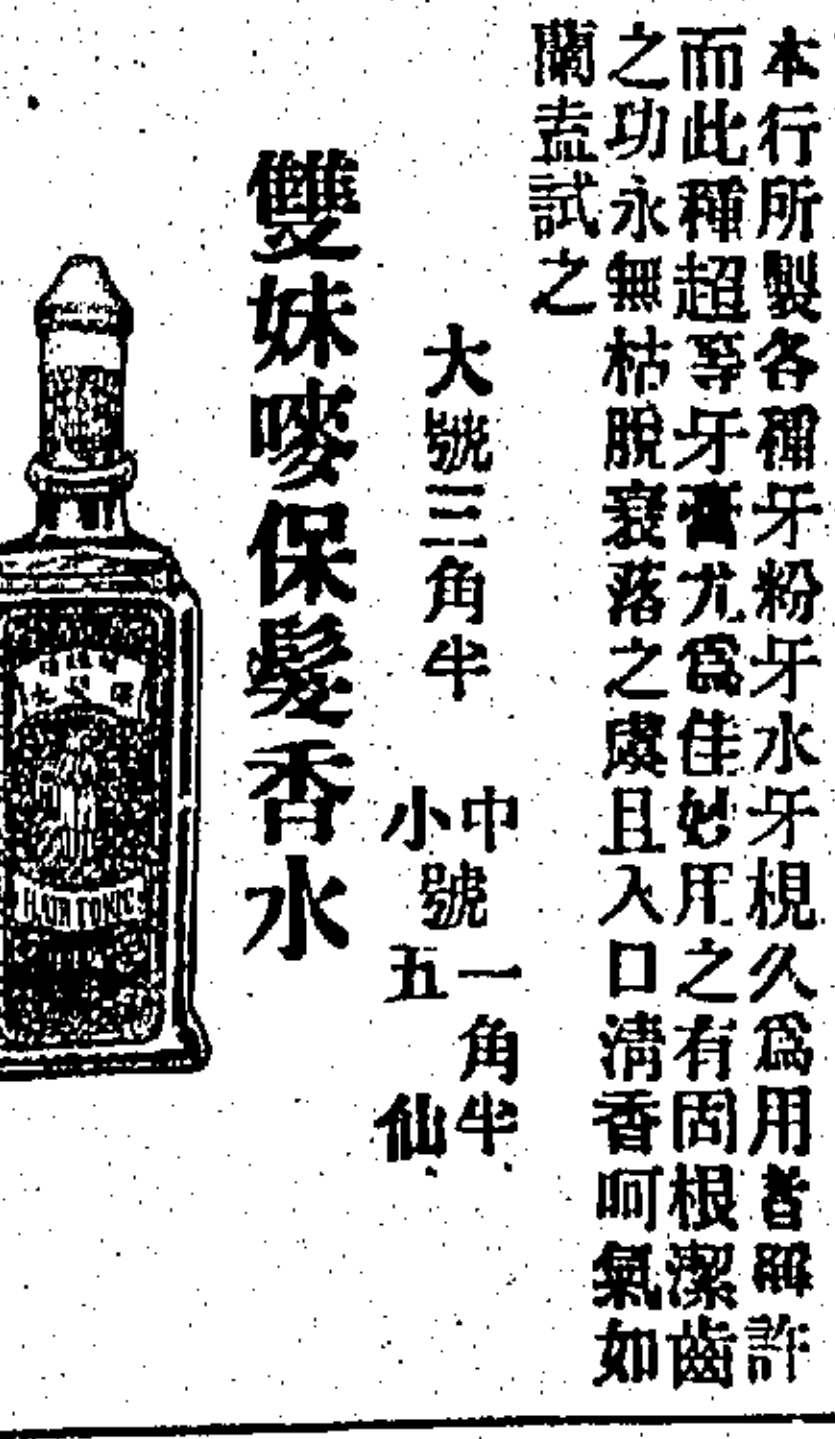 本行所製各種牙粉牙水牙梘久爲用者稱許
而此種超等牙膏尤爲佳妙用之有固根潔齒
之功永無枯脫衰落之虞且入口淸香呵氣如
蘭盍試之
大號三角半
中號一角半
小號五仙
雙妹嘜保髮香水
HAIR TONIC